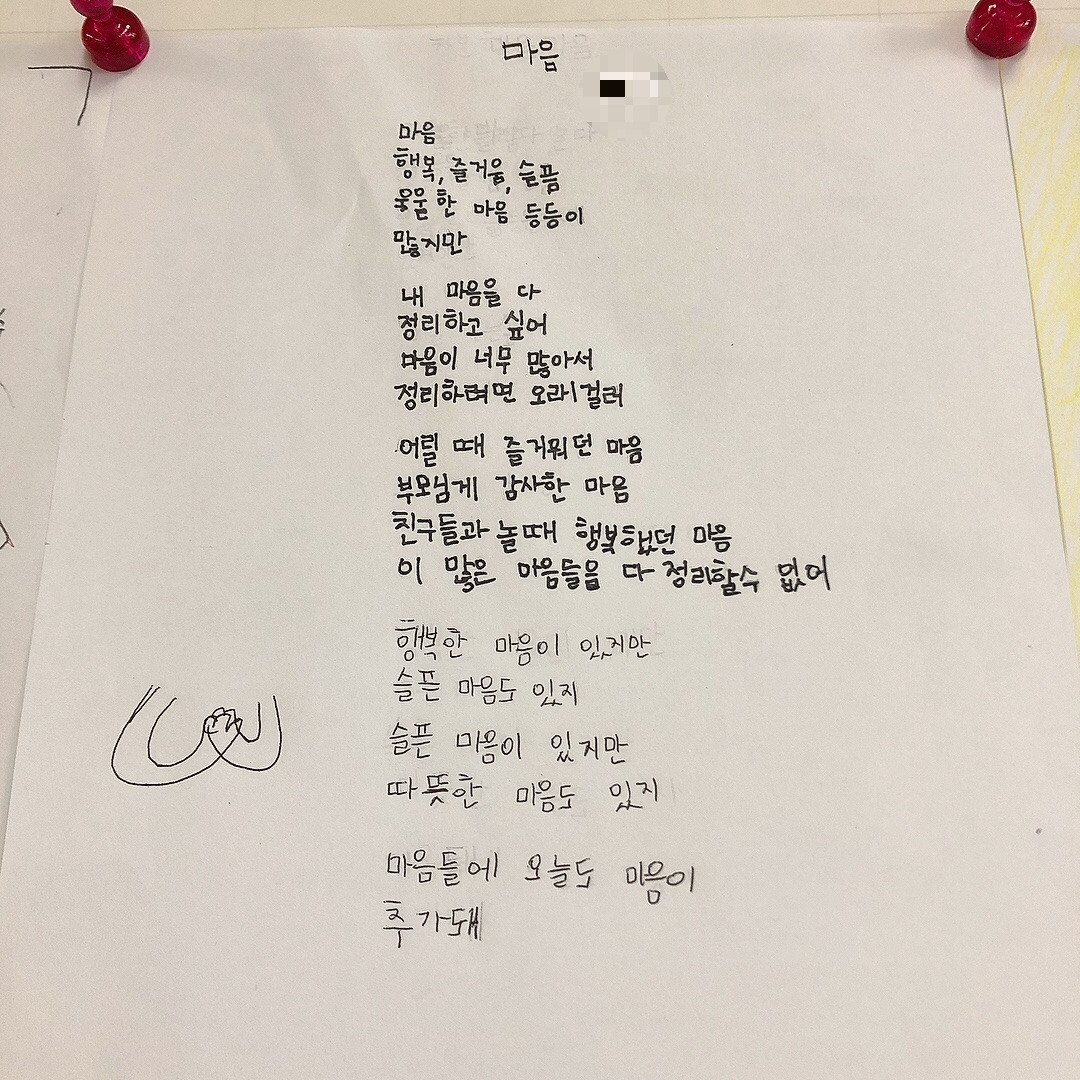 마음
마음
행복, 즐거움, 슬픔
우울한 마음 등등이
많지만
내 마음을 다
정리하고 싶어
마음이 너무 많아서
정리하려면 오래걸려
어릴 때 즐거워던 마음
부모님게 감사한 마음
친구들과 놀때 행복했던 마음
이 많은 마음들을 다 정리할수 없어
행복한 마음이 있지만
슬픈 마음도 있지
슬픈 마음이 있지만
따뜻한 마음도 있지
마음들에 오늘도 마음이
추가돼